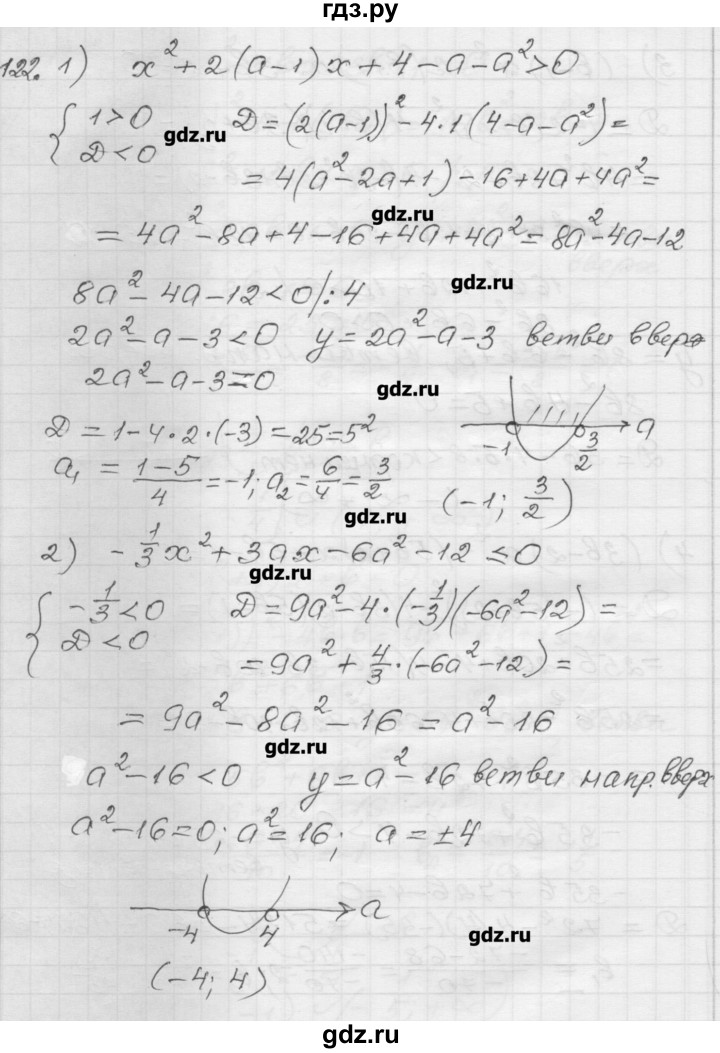 гдз.ру
122. 1) x² + 2(a-1)x + 4 - a - a² > 0
{ 1 > 0 D = (2(a-1))² - 4·1(4-a-a²) =
{ D < 0 gdz.ru
= 4(a² - 2a + 1) - 16 + 4a + 4a² =
gdz.ru
= 4a² - 8a + 4 - 16 + 4a + 4a² = 8a² - 4a - 12
8a² - 4a - 12 < 0 /: 4 gdz.ru
2a² - a - 3 < 0 y = 2a² - a - 3 ветви вверх
2a² - a - 3 = 0 gdz.ru
D = 1 - 4·2·(-3) = 25 = 5² -1 3/2 a
a₁ = (1-5)/4 = -1; a₂ = 6/4 = 3/2 (-1; 3/2)
gdz.ru
2) -1/3x² + 3ax - 6a² - 12 ≤ 0
gdz.ru
{ -1/3 < 0 D = 9a² - 4·(-1/3)(-6a² - 12) =
{ D < 0
= 9a² + 4/3·(-6a² - 12) =
gdz.ru
= 9a² - 8a² - 16 = a² - 16
gdz.ru
a² - 16 < 0 y = a² - 16 ветви напр. вверх
a² - 16 = 0; a² = 16; a = ±4
-4 4 a
gdz.ru
(-4; 4)
gdz.ru